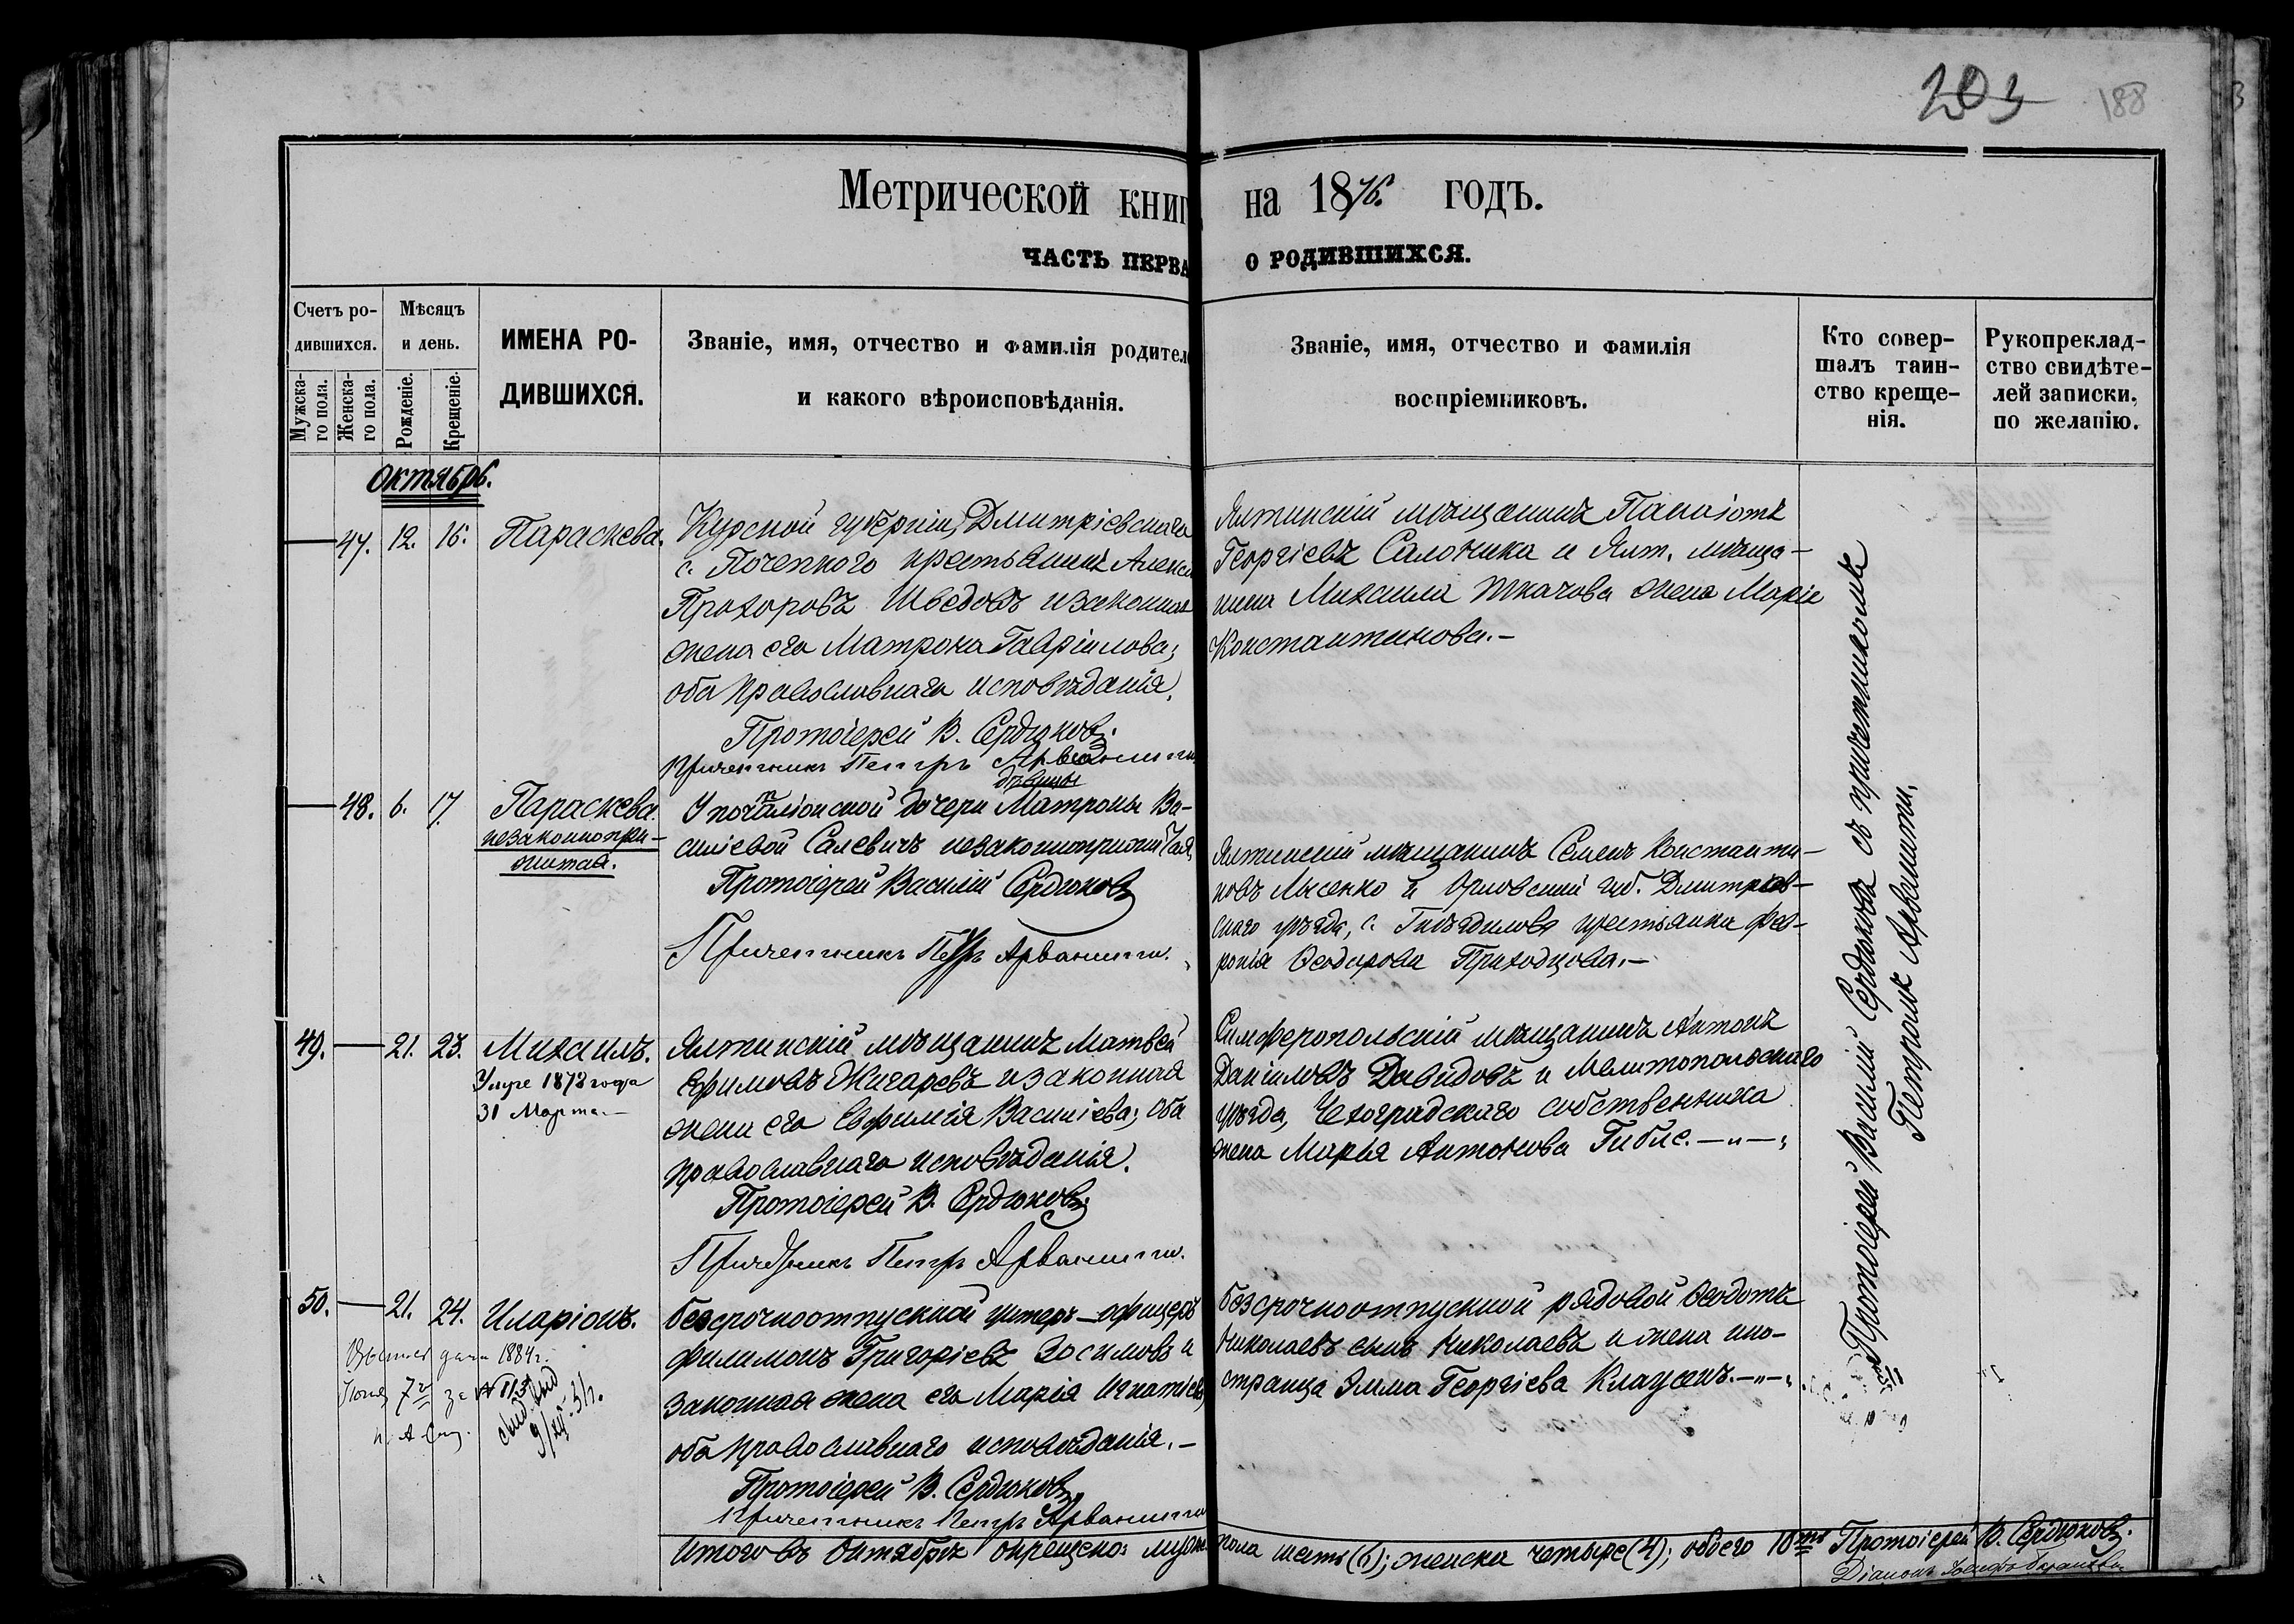 203 188
Метрической книг на 1876. годъ.
ЧАСТЬ ПЕРВА О РОДИВШИХСЯ.
Счетъ ро-
дившихся.
Мужска-
го пола.
Женска-
го пола.
Мѣсяцъ
и день.
Рожденіе.
Крещеніе.
ИМЕНА РО-
ДИВШИХСЯ.
Званіе, имя, отчество и фамилія родител
и какого вѣроисповѣданія.
Званіе, имя, отчество и фамилія
воспріемниковъ.
Кто совер-
шалъ таин-
ство креще-
нія.
Рукопреклад-
ство свидѣте-
лей записки,
по желанію.
Октябрь.
47. 12. 16. Параскева.
Курской губерніи, Дмитріевскаго
с. Почепного крестьянинъ Алекс
Прохоровъ Шведовъ и законная
жена его Матрона Гавріилова;
оба православнаго исповѣданія.
Протоіерей В. Сердюковъ.
Причетникъ Петръ Арванити
Ялтинскій мѣщанинъ Панаіотъ
Георгіевъ Салоника и Ялт. мѣща-
нина Михаила Ткачова жена Марія
Константинова.-
48. 6. 17. Параскева
незаконнопри-
житая.
дѣвицы
У почталіонской дочери Матроны Ва-
силіевой Салевичъ незаконноприжитая
Протоіерей Василій Сердюковъ
Причетникъ Петръ Арванити.
Ялтинскій мѣщанинъ Семенъ Константи-
новъ Лысенко и Орловской губ. Дмитров-
скаго уѣзда, с. Гнѣздилова крестьянка Фев-
ронія Ѳеодорова Приходцова.-
49. 21. 23. Михаилъ.
Умре 1878 года
31 Марта.-
Ялтинскій мѣщанинъ Матвей
Ефимовъ Жигаревъ и законная
жена его Евфимія Василіева; оба
православнаго исповѣданія.
Протоіерей В. Сердюковъ
Причетникъ Петръ Арванити.
Симферопольскій мѣщанинъ Антонъ
Даніиловъ Давидовъ и Мелитопольскаго
уѣзда, Чехоградскаго собственника
жена Марья Антонова Гиблс.-"-
50. 21. 24. Иларіонъ.
дана 1884 г.
7 за № 113
безсрочноотпускной унтеръ-офицеръ
Филимонъ Григоріевъ Зосимовъ и
законная жена его Марія Игнатіева
оба православнаго исповѣданія.-
Протоіерей В. Сердюковъ
Причетникъ Петръ Арванити
безсрочноотпускной рядовой Ѳеодотъ
Николаевъ сынъ Николаевъ и жена ино-
странца Эмма Георгіева Клаузенъ.-"-
Протоіерей Василій Сердюковъ съ причетникомъ
Петромъ Арванити.
Итого въ Октябрѣ окрещено: мужск пола шесть (6); женска четыре (4); обоего 10ть Протоіерей В. Сердюковъ.
Діаконъ